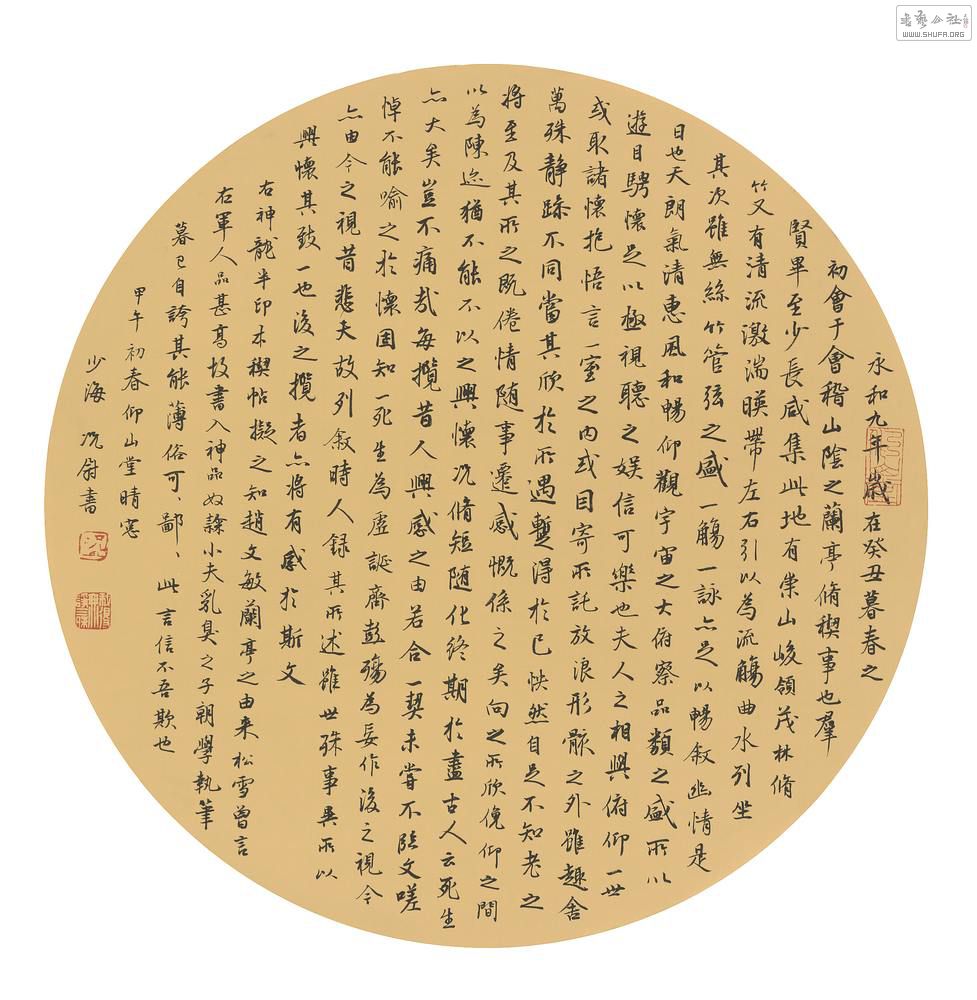 永和九年歲在癸丑暮春之
初會于會稽山陰之蘭亭脩稧事也羣
賢畢至少長咸集此地有崇山峻領茂林脩
竹又有清流激湍暎帶左右引以為流觴曲水列坐
其次雖無絲竹管弦之盛一觴一詠亦足以暢敘幽情是
日也天朗氣清惠風和暢仰觀宇宙之大俯察品類之盛所以
遊目騁懷足以極視聽之娛信可樂也夫人之相與俯仰一世
或取諸懷抱悟言一室之內或因寄所託放浪形骸之外雖趣舍
萬殊靜躁不同當其欣於所遇暫得於己怏然自足不知老之
將至及其所之既倦情隨事遷感慨係之矣向之所欣俛仰之間
以為陳迹猶不能不以之興懷況脩短隨化終期於盡古人云死生
亦大矣豈不痛哉每攬昔人興感之由若合一契未嘗不臨文嗟
悼不能喻之於懷固知一死生為虛誕齊彭殤為妄作後之視今
亦由今之視昔悲夫故列敘時人錄其所述雖世殊事異所以
興懷其致一也後之攬者亦將有感於斯文
右神龍半印本稧帖擬之知趙文敏蘭亭之由来松雪曾言
右軍人品甚高故書入神品奴隸小夫乳臭之子朝學執筆
暮已自誇其能薄俗可、鄙、此言信不吾欺也
甲午初春仰山堂晴窓
少海況尉書
WWW.SHUFA.ORG